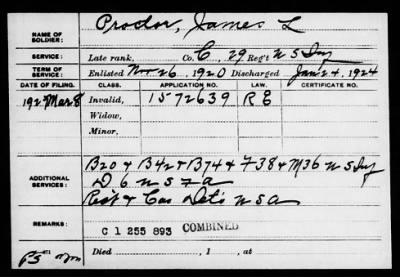 NAME OF SOLDIER: Proctor, James L
SERVICE: Late rank, Co. C, 29 Reg't U S Inf
TERM OF SERVICE: Enlisted Nov. 26, 1920 Discharged Jan 24, 1924
DATE OF FILING. CLASS. APPLICATION NO. LAW. CERTIFICATE NO.
1927 Mar 8 Invalid, 1572639 R E
Widow,
Minor,
ADDITIONAL SERVICES: B20 & B42 & B74 & F38 & M36 U S Inf
D 6 U S F A
Rec't & Cas Det's U S A
REMARKS: C 1 255 893 COMBINED
Died , 1 , at